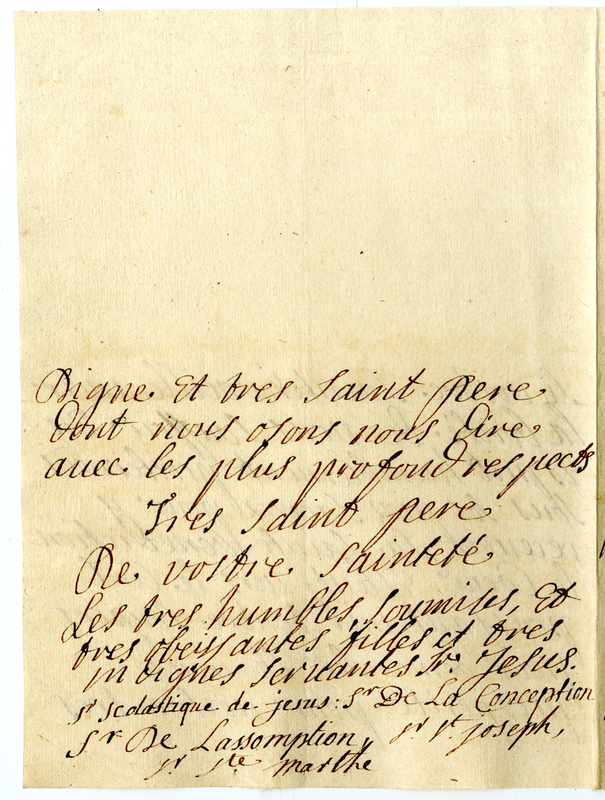 Digne et tres saint pere
dont nous osons nous dire
auec les plus profond respects
Tres saint pere
De vostre sainteté
Les tres humbles, soumises, et
tres obeissantes filles et tres
indignes seruantes Sr. Jesus.
sr scolastique de jesus: Sr De La Conception
Sr De Lassomption, sr st joseph,
sr ste marthe